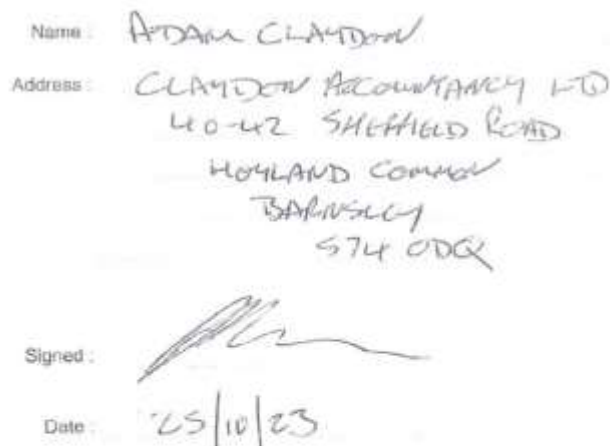 Name : ADAM CLAYDON
Address : CLAYDON ACCOUNTANCY LTD
40-42 SHEFFIELD ROAD
HOYLAND COMMON
BARNSLEY
S74 0DQ
Signed :
Date : 25/10/23